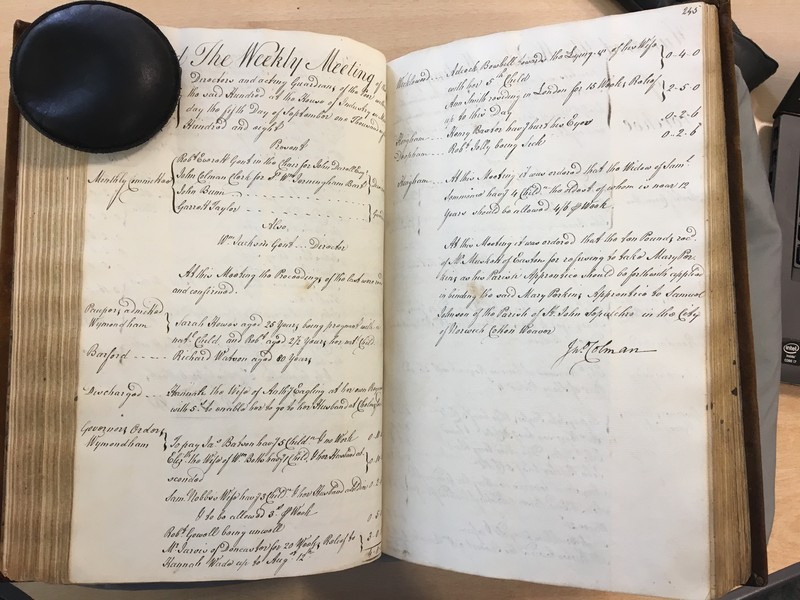 At The Weekly Meeting of
Directors and acting Guardians of the Poor
the said Hundred at the House of Industry
day the fifth Day of September one Thousand
Hundred and eight
Present
Monthly Committee
Robt. Everett Gent in the Chair for John Esqr.
John Colman Clerk for Sr. Wm. Jerningham Bart
John Bunn
Garrett Taylor
Also,
Wm. Jackson Gent Director
At this Meeting the Proceedings of the last were
and confirmed.
Paupers admitted
Wymondham
Sarah Howes aged 25 Years being pregnant with a
natl. Child, and Robt. aged 2½ Years her natl. Child
Barford Richard Watson aged 80 Years
Discharged Hannah the Wife of Anthy. Eagling at her own
with 5s. to enable her to go to her Husband at
Governors Orders
Wymondham
To pay Jas. Batson havg. 5 Childn. & no Work
Elizth. the Wife of Wm. Betts havg. 1 Child, & her Husband ab-
sconded
Saml. Nobbs's Wife havg. 3 Childn. & her Husband
& to be allowed 3s. ⅌ Week
Robt. Gowell being unwell
Mr. Jarvis of Doncaster for 20 Weeks Relief to
Hannah Wade up to Augst. 12th
245
Wicklewood Adcock Bowhill towards the Lying-in of his Wife
with her 5th Child 0-4-0
Ann Smith residing in London for 15 Weeks Relief
up to this Day 2-5-0
Hingham Henry Baxter havg. hurt his Eyes 0-2-6
Robt. Jolly being Sick 0-2-6
Hingham At this Meeting it was ordered that the Widow of Saml.
havg. 4 Childn. the eldest of whom is near 12
Years should be allowed 4/6 ⅌ Week
At this Meeting it was ordered that the ten Pounds recd.
of Mr. Muskett of Easton for refusing to take Mary Per-
kins as his Parish Apprentice should be forthwith applied
in binding the said Mary Perkins Apprentice to Samuel
Johnson of the Parish of St. John Sepulchre in the City
of Norwich Cotton Weaver
Jno. Colman
intel